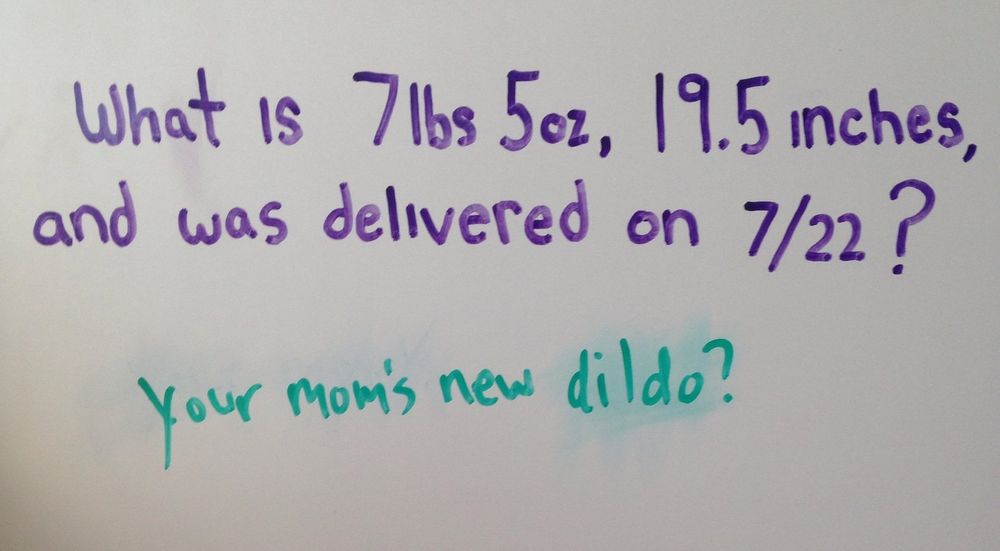 What is 7lbs 5oz, 19.5 inches,
and was delivered on 7/22?
your mom's new dildo?